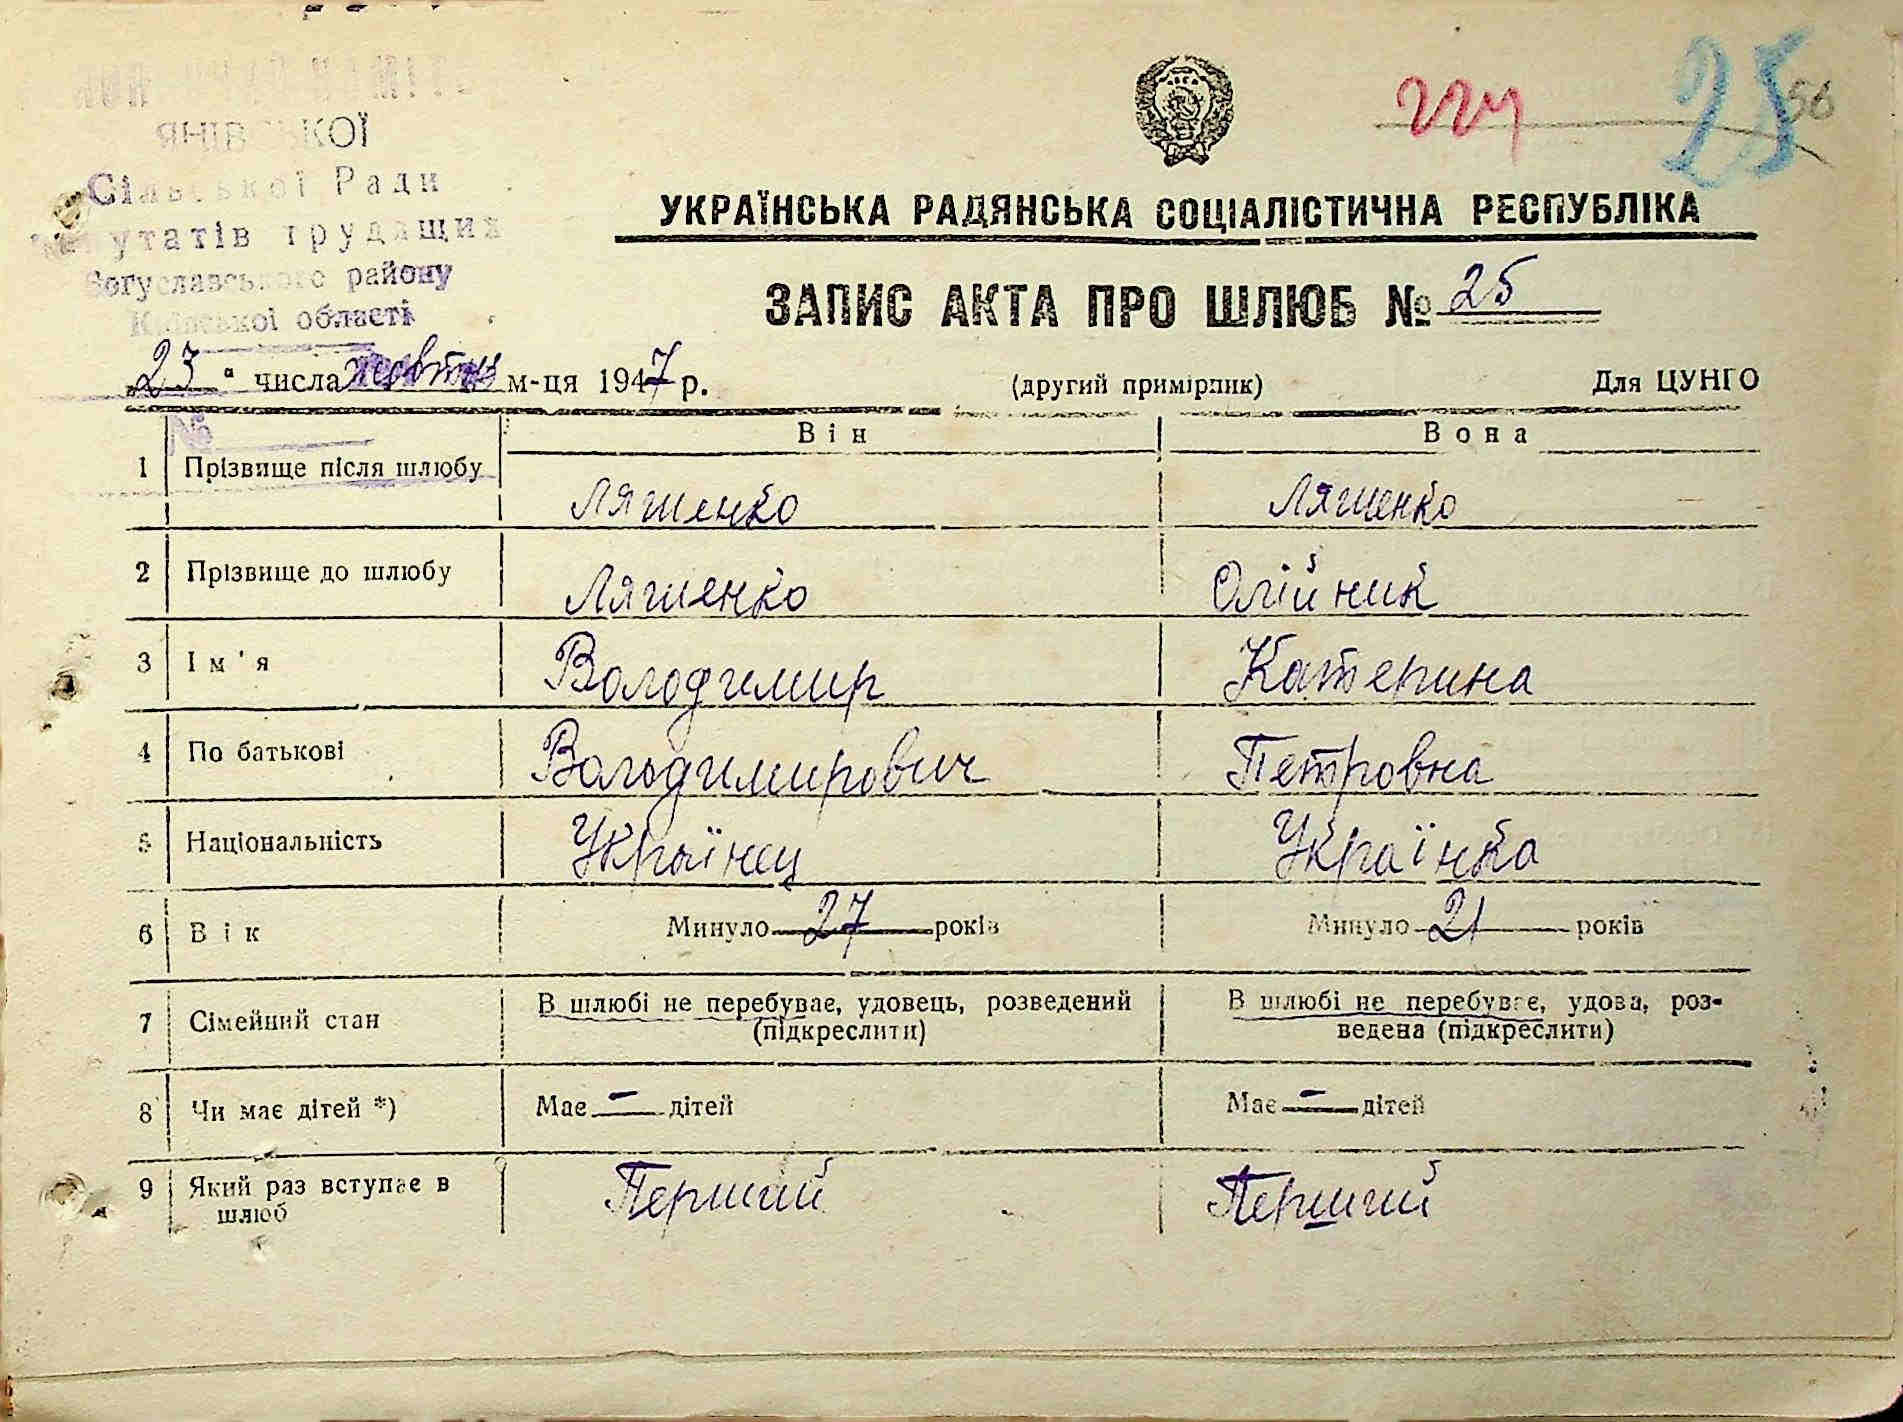 Сільської Ради
депутатів трудящих
Богуславського району
Київської області
224
25
56
УКРАЇНСЬКА РАДЯНСЬКА СОЦІАЛІСТИЧНА РЕСПУБЛІКА
ЗАПИС АКТА ПРО ШЛЮБ № 25
23 " числа жовтня м-ця 1947 р. (другий примірник) Для ЦУНГО
№
Він Вона
1 Прізвище після шлюбу Ляшенко Ляшенко
2 Прізвище до шлюбу Ляшенко Олійник
3 Ім'я Володимир Катерина
4 По батькові Володимирович Петровна
5 Національність Українец Українка
6 Вік Минуло 27 років Минуло 21 років
7 Сімейний стан В шлюбі не перебуває, удовець, розведений (підкреслити) В шлюбі не перебуває, удова, роз-
ведена (підкреслити)
8 Чи має дітей *) Має – дітей Має – дітей
9 Який раз вступає в Перший Перший
шлюб